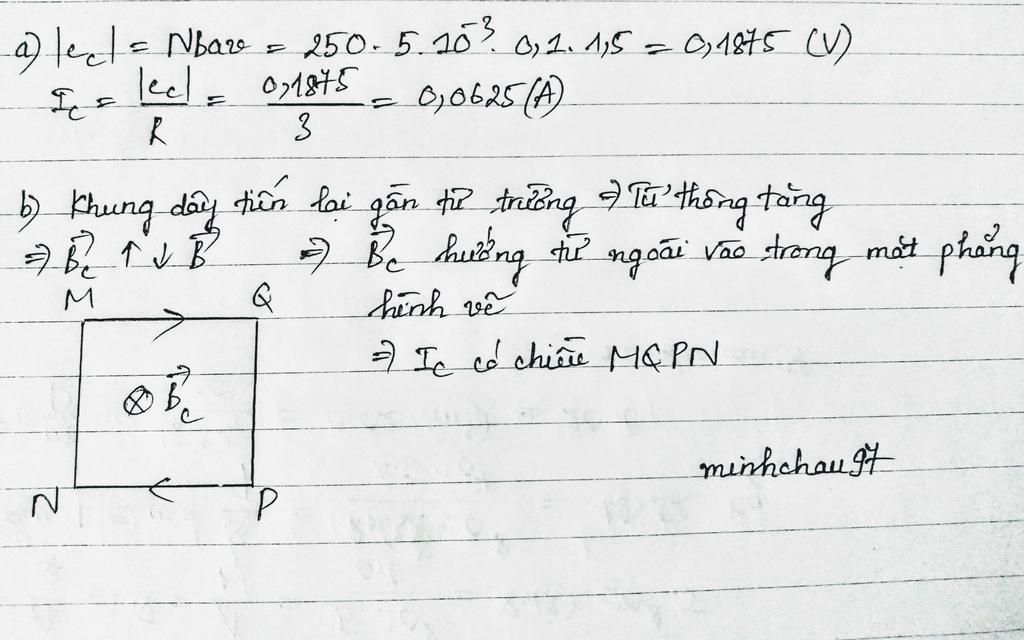 a) |e_c| = Nbav = 250 . 5 . 10⁻³ . 0,1 . 1,5 = 0,1875 (V)
I_c = |e_c|/R = 0,1875/3 = 0,0625 (A)
b) Khung dây tiến lại gần từ trường ⇒ Từ thông tăng
⇒ B⃗_c ↑↓ B⃗ ⇒ B⃗_c hướng từ ngoài vào trong mặt phẳng
hình vẽ
⇒ I_c có chiều MQPN
M Q
⊗ B⃗_c
N P
minhchau97